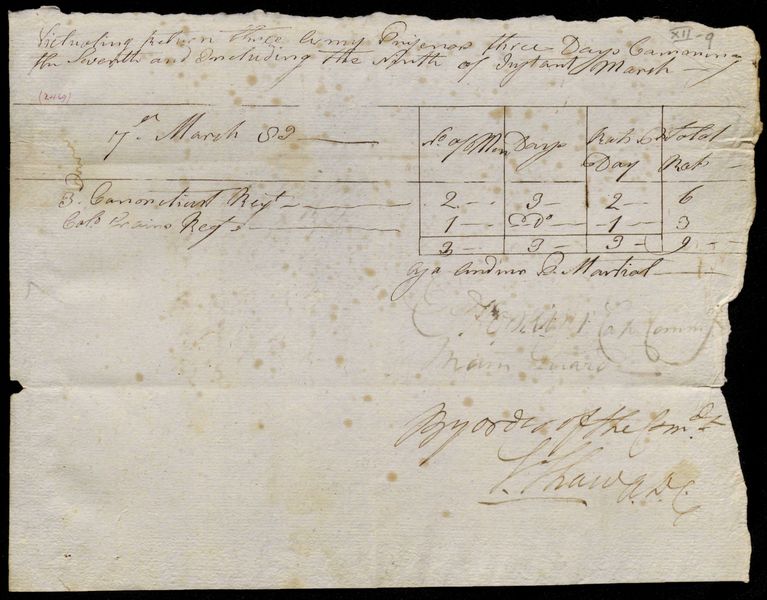 XII-9
Victualing Return three Army Prisoners three Days Comencing
the Seventh and Including the Ninth of Instant March
(249)
7th March 82 No of Men Days Rats Pr Day Total Rats
3. Connecticut Regt 2 3 2 6
Colo Regt 1 Do 1 3
3 3 3 9
P. Martial
Capt Comming
Main Guard
By order of the Comdt
S. Shaw A.D.C.